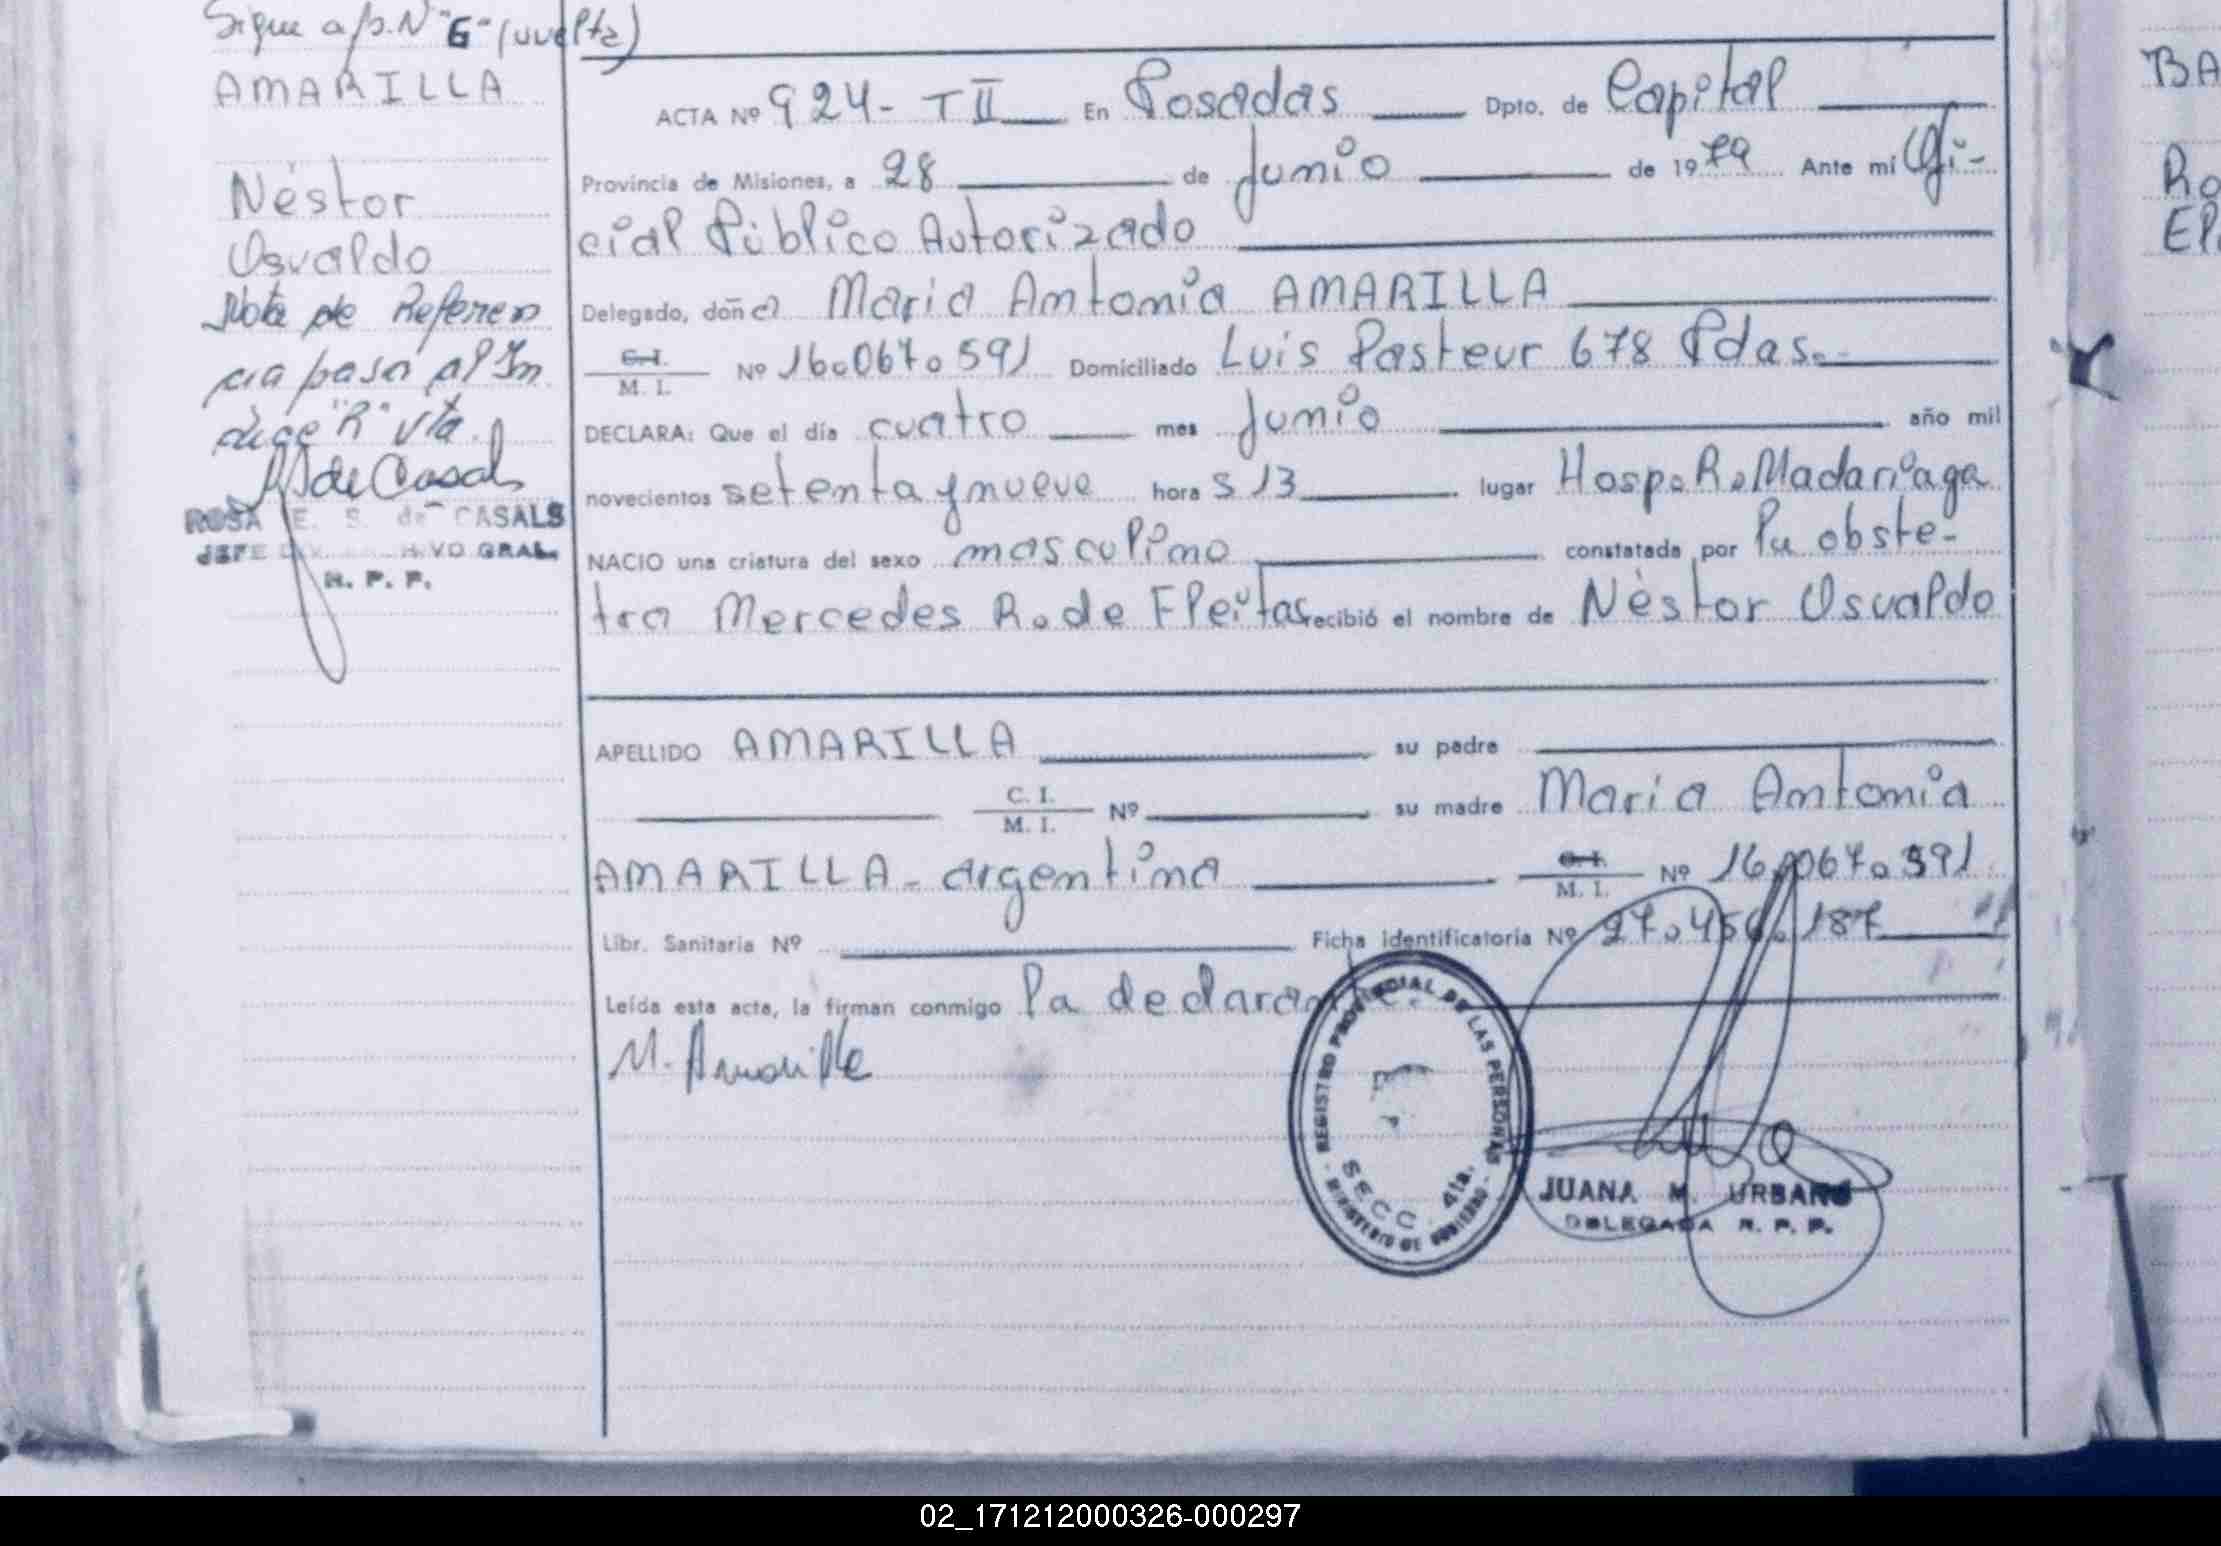 Sigue a/p. Nº "G" (vuelta)
AMARILLA
Néstor
Osvaldo
Nota de Referen
cia pasa al Ín
dice "R" vta.
R S de Casals
ROSA E. S. de CASALS
JEFE DIV. ARCHIVO GRAL.
R. P. P.
ACTA Nº 924- T II En Posadas Dpto. de Capital
Provincia de Misiones, a 28 de Junio de 1979 Ante mí Ofi-
cial Público Autorizado
Delegado, doña María Antonia AMARILLA
C. I.
M. I. Nº 16.067.591 Domiciliado Luis Pasteur 678 Pdas.
DECLARA: Que el día cuatro mes Junio año mil
novecientos setenta y nueve hora s 13 lugar Hosp. R. Madariaga
NACIO una criatura del sexo masculino constatada por la obste-
tra Mercedes R. de Fleitas recibió el nombre de Néstor Osvaldo
APELLIDO AMARILLA su padre
C. I.
M. I. Nº su madre Maria Antonia
AMARILLA - argentina C. I.
M. I. Nº 16.067.591
Libr. Sanitaria Nº Ficha identificatoria Nº 27.456.187
Leída esta acta, la firman conmigo la declarante.
M. Amarilla
REGISTRO PROVINCIAL DE LAS PERSONAS
SECC. 4ta.
MINISTERIO DE GOBIERNO
JUANA M. URBANO
DELEGADA R. P. P.
BA
Ro
El
02_171212000326-000297